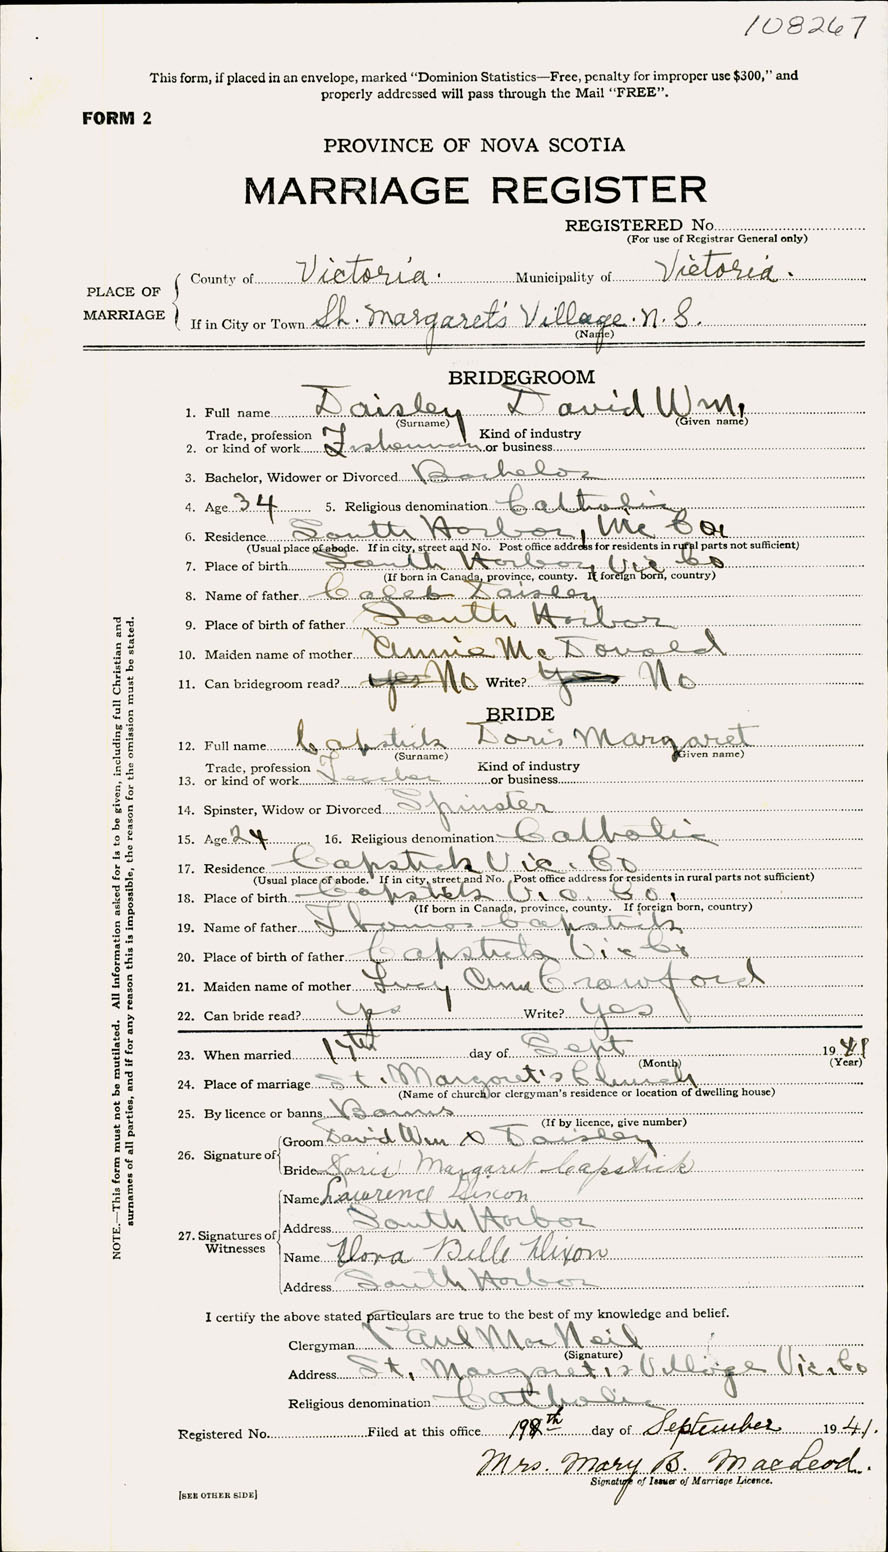 108267
This form, if placed in an envelope, marked "Dominion Statistics—Free, penalty for improper use $300," and
properly addressed will pass through the Mail "FREE".
FORM 2
PROVINCE OF NOVA SCOTIA
MARRIAGE REGISTER
REGISTERED No.
(For use of Registrar General only)
PLACE OF MARRIAGE
County of Victoria. Municipality of Victoria.
If in City or Town St. Margaret's Village. N. S.
(Name)
BRIDEGROOM
1. Full name Daisley David Wm.
(Surname) (Given name)
2. Trade, profession or kind of work Fisherman Kind of industry or business
3. Bachelor, Widower or Divorced Bachelor
4. Age 34 5. Religious denomination Catholic
6. Residence South Harbor, Vic Co.
(Usual place of abode. If in city, street and No. Post office address for residents in rural parts not sufficient)
7. Place of birth South Harbor, Vic Co
(If born in Canada, province, county. If foreign born, country)
8. Name of father Caleb Daisley
9. Place of birth of father South Harbor
10. Maiden name of mother Annie McDonald
11. Can bridegroom read? yes No Write? Yes No
BRIDE
12. Full name Capstick Doris Margaret
(Surname) (Given name)
13. Trade, profession or kind of work Teacher Kind of industry or business
14. Spinster, Widow or Divorced Spinster
15. Age 24 16. Religious denomination Catholic
17. Residence Capstick Vic. Co
(Usual place of abode. If in city, street and No. Post office address for residents in rural parts not sufficient)
18. Place of birth Capstick Vic. Co.
(If born in Canada, province, county. If foreign born, country)
19. Name of father Thomas Capstick
20. Place of birth of father Capstick Vic Co
21. Maiden name of mother Lucy Ann Crawford
22. Can bride read? Yes Write? Yes
23. When married 17th day of Sept 1941
(Month) (Year)
24. Place of marriage St. Margaret's Church
(Name of church or clergyman's residence or location of dwelling house)
25. By licence or banns Banns
(If by licence, give number)
26. Signature of Groom David Wm X Daisley
Bride Doris Margaret Capstick
27. Signatures of Witnesses
Name Lawrence Dixon
Address South Harbor
Name Flora Belle Dixon
Address South Harbor
I certify the above stated particulars are true to the best of my knowledge and belief.
Clergyman Paul MacNeil
(Signature)
Address St. Margaret's Village Vic. Co
Religious denomination Catholic
Registered No. Filed at this office day of September 1941.
Mrs. Mary B. MacLeod.
Signature of Issuer of Marriage Licence.
[SEE OTHER SIDE]
NOTE.—This form must not be mutilated. All information asked for is to be given, including full Christian and
surnames of all parties, and if for any reason this is impossible, the reason for the omission must be stated.